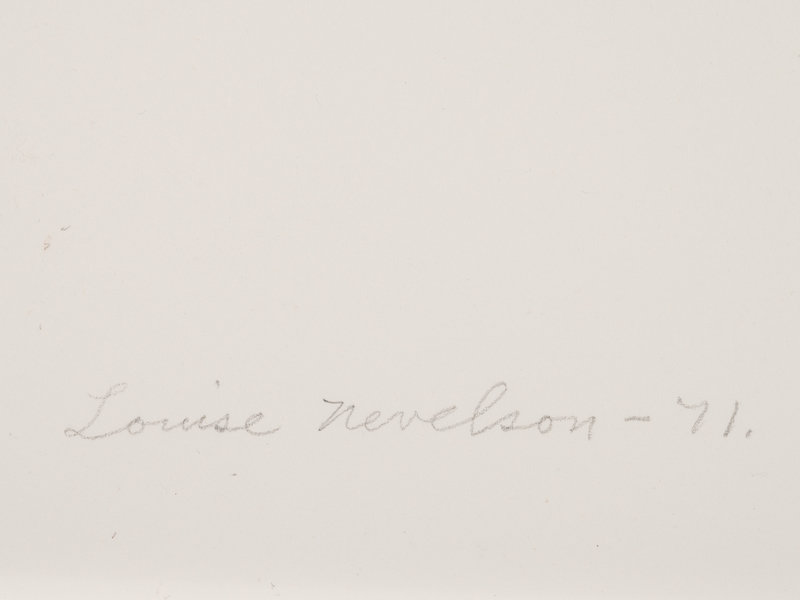 Louise Nevelson - 71.